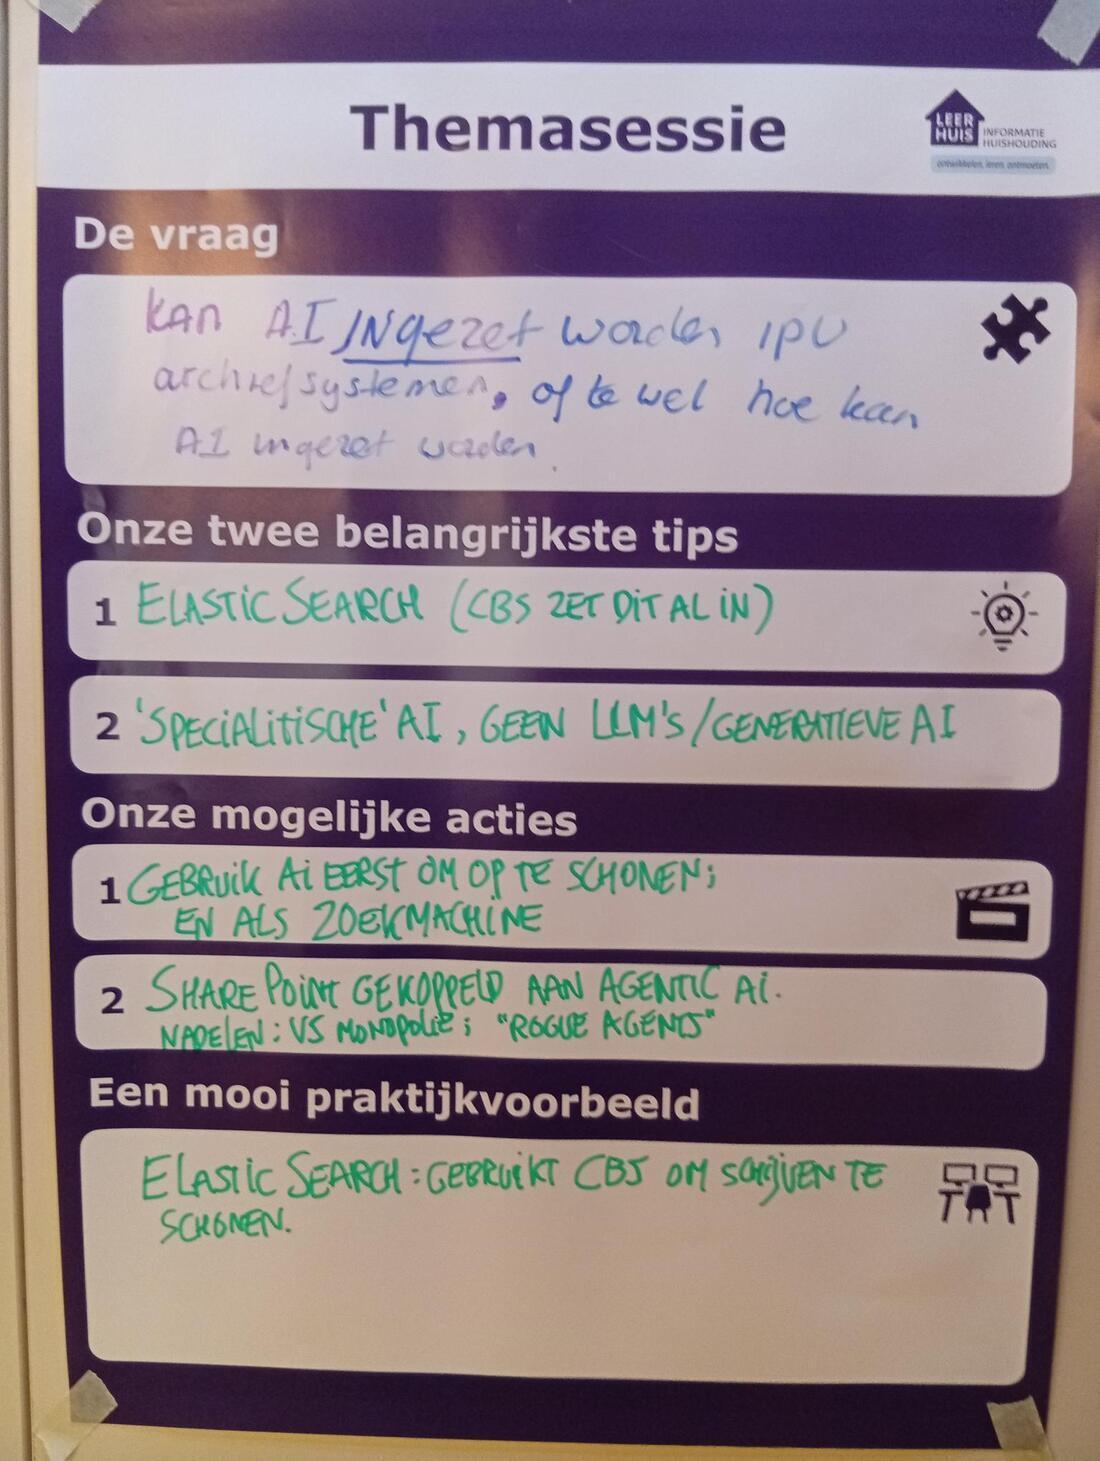 Themasessie
LEER
HUIS
INFORMATIE
HUISHOUDING
ontwikkelen, leren, ontmoeten.
De vraag
kan AI INgezet worden ipv
archiefsystemen, of te wel hoe kan
AI ingezet worden.
Onze twee belangrijkste tips
1 ELASTIC SEARCH (CBS ZET DIT AL IN)
2 'SPECIALITISCHE' AI, GEEN LLM'S/GENERATIEVE AI
Onze mogelijke acties
1 GEBRUIK AI EERST OM OP TE SCHONEN;
EN ALS ZOEKMACHINE
2 SHAREPOINT GEKOPPELD AAN AGENTIC AI.
NADELEN: VS MONOPOLIE; "ROGUE AGENTS"
Een mooi praktijkvoorbeeld
ELASTIC SEARCH: GEBRUIKT CBS OM SCHIJVEN TE
SCHONEN.